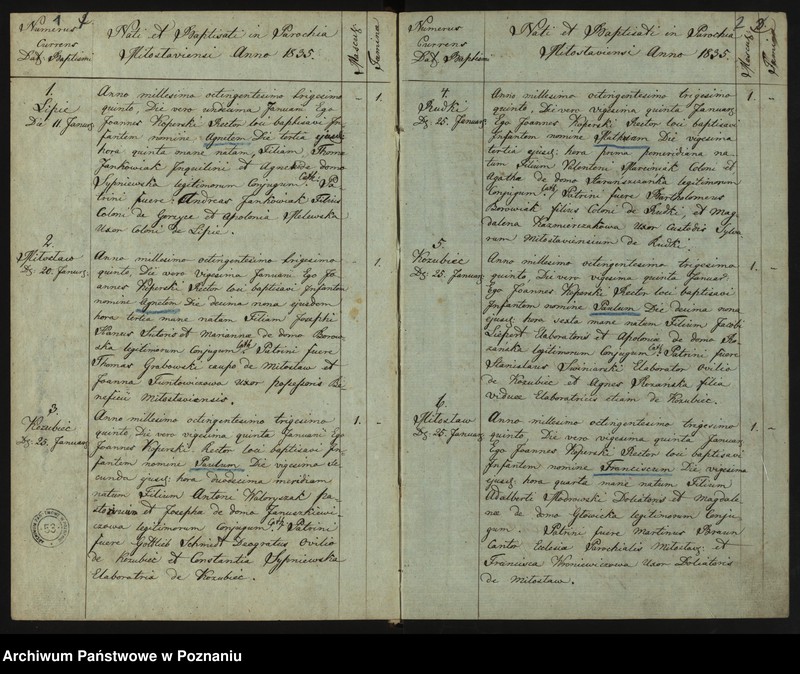 Numerus
Currens
Dat. Baptism
1
Nati et Baptisati in Parochia
Miłosłaviensi Anno 1835.
Mascul.
Famina
1.
Lipie
Die 11 Januar.
Anno millesimo octingentesimo trigesimo
quinto, Die vero undecima Januarii Ego
Joannes Kąperski Rector loci baptisavi In-
fantem nomine Agnetem Die tertia ejusd.
hora quinta mane natam, Filiam Thoma
Jankowiak Inquilini et Agnetis de domo
Sypniewska legitimorum Conjugum Cath. Pa-
trini fuere Andreas Jankowiak Filius
Coloni de Gorzyce et Apolonia Milewska
Uxor Coloni de Lipie.
- 1.
2.
Miłosław
D. 20. Januar.
Anno millesimo octingentesimo trigesimo
quinto, Die vero vigesima Januarii Ego Jo-
annes Kąperski Rector loci baptisavi Infantem
nomine Agnetem Die decima nona ejusdem
hora tertia mane natam Filiam Josephi
Sutoris et Marianna de domo Borow-
ska legitimorum Conjugum Cath. Patrini fuere
Thomas Grabowski caupo de Miłosław et
Joanna Uxor possessoris Be-
neficii Miłosłaviensis.
- 1.
3.
Kozubiec
D. 25. Januar.
Anno millesimo octingentesimo trigesimo
quinto Die vero vigesima quinta Januarii Ego
Joannes Kąperski Rector loci baptisavi In-
fantem nomine Paulum Die vigesima se-
cunda ejusd. hora duodecima meridiam
natum Filium Antoni
et Josepha de domo Januszkiewi-
czowa legitimorum Conjugum Cath. Patrini
fuere Gottlieb Schmidt Ovilio
de Kozubiec et Constantia Sypniewska
Elaboratrix de Kozubiec.
1. -
Numerus
Currens
Dat. Baptism
Nati et Baptisati in Parochia
Miłosłaviensi Anno 1835.
2
Mascul.
Famina
4.
Rudki
D. 25. Januar.
Anno millesimo octingentesimo trigesimo
quinto, Die vero vigesima quinta Januar.
Ego Joannes Kąperski Rector loci baptisavi
Infantem nomine Mathiam Die vigesima
tertia ejusd. hora prima pomeridiana na-
tum Filium Valentini Coloni et
Agatha de domo legitimorum
Conjugum Cath. Patrini fuere Bartholomeus
Borowiak filius Coloni de Rudki, et Mag-
dalena Kazmierczakowa Uxor Custodis Sylva-
rum Miłosłaviensium de Rudki.
1. -
5.
Kozubiec
D. 25. Januar.
Anno millesimo octingentesimo trigesimo
quinto, Die vero vigesima quinta Januar.
Ego Joannes Kąperski Rector loci baptisavi
Infantem nomine Paulum Die decima nona
ejusd. hora sexta mane natum Filium Jacobi
Elaboratoris et Apolonia de domo Ro-
zańska legitimorum Conjugum Cath. Patrini fuere
Stanislaus Swiniarski Elaborator Ovilio
de Kozubiec et Agnes Rozanska filia
Vidua Elaboratricis etiam de Kozubiec.
1. -
6.
Miłosław
D. 25. Januar.
Anno millesimo octingentesimo trigesimo
quinto, Die vero vigesima quinta Januar.
Ego Joannes Kąperski Rector loci baptisavi
Infantem nomine Franciscum Die vigesima
ejusd. hora quarta mane natum Filium
Adalberti Młodowski Doliatoris et Magdale-
na de domo Głowicka legitimorum Conju-
gum. Patrini fuere Martinus Boraun
Cantor Ecclesia Parochialis Miłosław. et
Francisca Wroniewiczowa Uxor Doliatoris
de Miłosław.
1. -
53
Archiwum Państwowe w Poznaniu